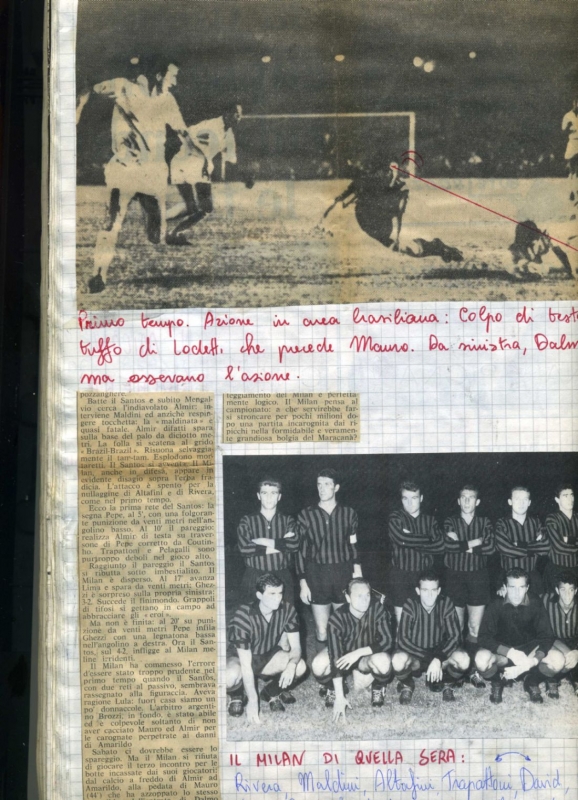 Primo tempo. Azione in area brasiliana: Colpo di test
tuffo di Lodetti, che precede Mauro. Da sinistra, Dalm
ma osservano l'azione.
polzangherre.
Batte il Santos e subito Mengal-
vio cerca l'indiavolato Almir: in-
terviene Maldini ed anziché respin-
gere tocchetta: la «maldinata» è
quasi fatale. Almir difatti spara
sulla base del palo da diciotto me-
tri. La folla si scatena al grido
«Brazil-Brazil». Risuona selvaggia-
mente il tam-tam. Esplodono mor-
taretti. Il Santos si avventa: il Mi-
lan, anche in difesa, appare in
evidente disagio sopra l'erba fra-
dicia. L'attacco è spento per la
nullaggine di Altafini e di Rivera,
come nel primo tempo.
Ecco la prima rete del Santos: la
segna Pepe, al 5', con una folgoran-
te punizione da venti metri nell'an-
golino basso. Al 10' il pareggio:
realizza Almir di testa su traver-
sone di Pepe corretto da Coutin-
ho. Trapattoni e Pelagalli sono
purtroppo deboli nel gioco alto.
Raggiunto il pareggio il Santos
si ributta sotto imbestialito. Il
Milan è disperso. Al 17' avanza
Lima e spara da venti metri; Ghez-
zi è sorpreso sulla propria sinistra:
3-2. Succede il finimondo. Grappoli
di tifosi si gettano in campo ad
abbracciare gli «eroi».
Ma non è finita: al 20' su puni-
zione da venti metri Pepe infila
Ghezzi con una legnatona bassa
nell'angolino a destra. Ora il San-
tos, sul 4-2, infligge al Milan me-
line irridenti.
Il Milan ha commesso l'errore
d'essere stato troppo prudente nel
primo tempo quando il Santos,
con due reti al passivo, sembrava
rassegnato alla figuraccia. Aveva
ragione Lula: fuori casa siamo un
po' donnaccole. L'arbitro argenti-
no Brozzi, in fondo, è stato abile
ed è colpevole soltanto di non
aver cacciato Mauro ed Almir per
le carognate perpetrate ai danni
di Amarildo
Sabato ci dovrebbe essere lo
spareggio. Ma il Milan si rifiuta
di giocare il terzo incontro per le
botte incassate dai suoi giocatori
dal calcio a freddo di Almir ad
Amarildo, alla pedata di Mauro
(44') che ha azzoppato lo stesso
di Dalmo
teggiamento del Milan è perfetta-
mente logico. Il Milan pensa al
campionato: a che servirebbe far-
si stroncare per pochi milioni do-
po una partita incarognita dai ri-
picchi nella formidabile e veramen-
te grandiosa bolgia del Maracanà?
IL MILAN DI QUELLA SERA:
Rivera Maldini, Altafini Trapattoni, David,